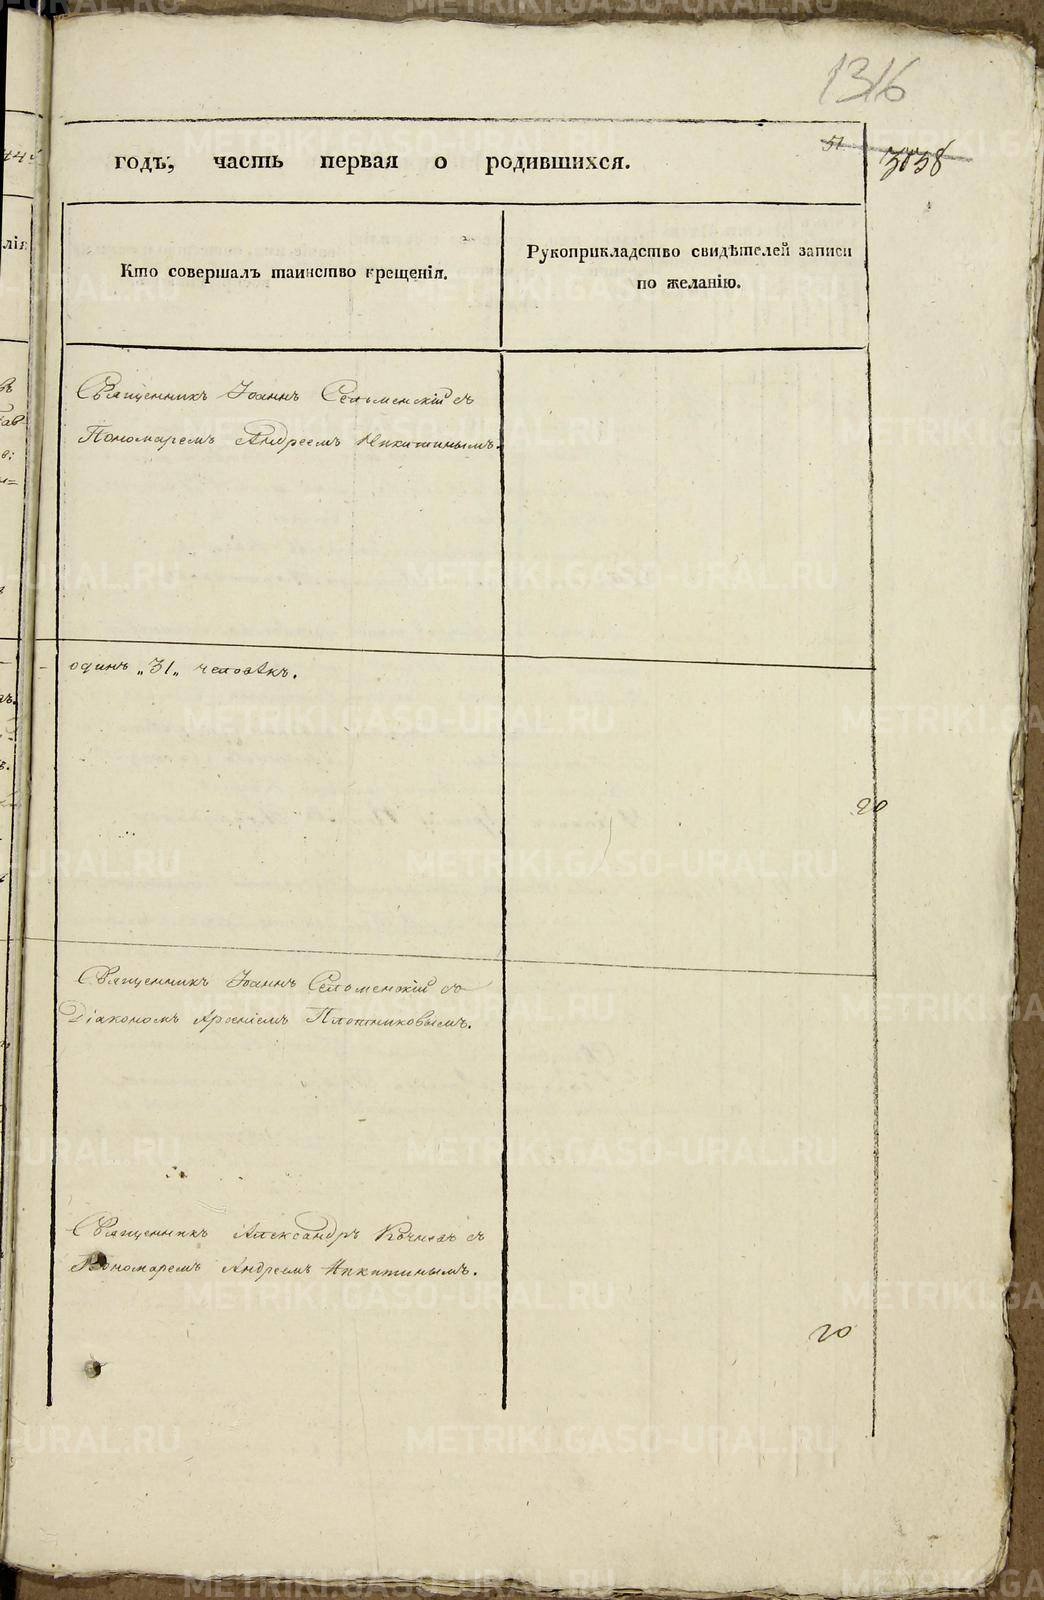 1316
годъ, часть первая о родившихся.
51
3058
Кто совершалъ таинство крещенія.
Рукоприкладство свидѣтелей записи
по желанію.
Священникъ Іоаннъ Селоменскій съ
Пономаремъ Андреемъ Никитинымъ.
одинъ „31„ человѣкъ.
20
Священникъ Іоаннъ Селоменскій съ
Діакономъ Арсеніемъ Плотниковымъ.
Священникъ Александръ съ
Пономаремъ Андреемъ Никитинымъ.
20
METRIKI.GASO-URAL.RU